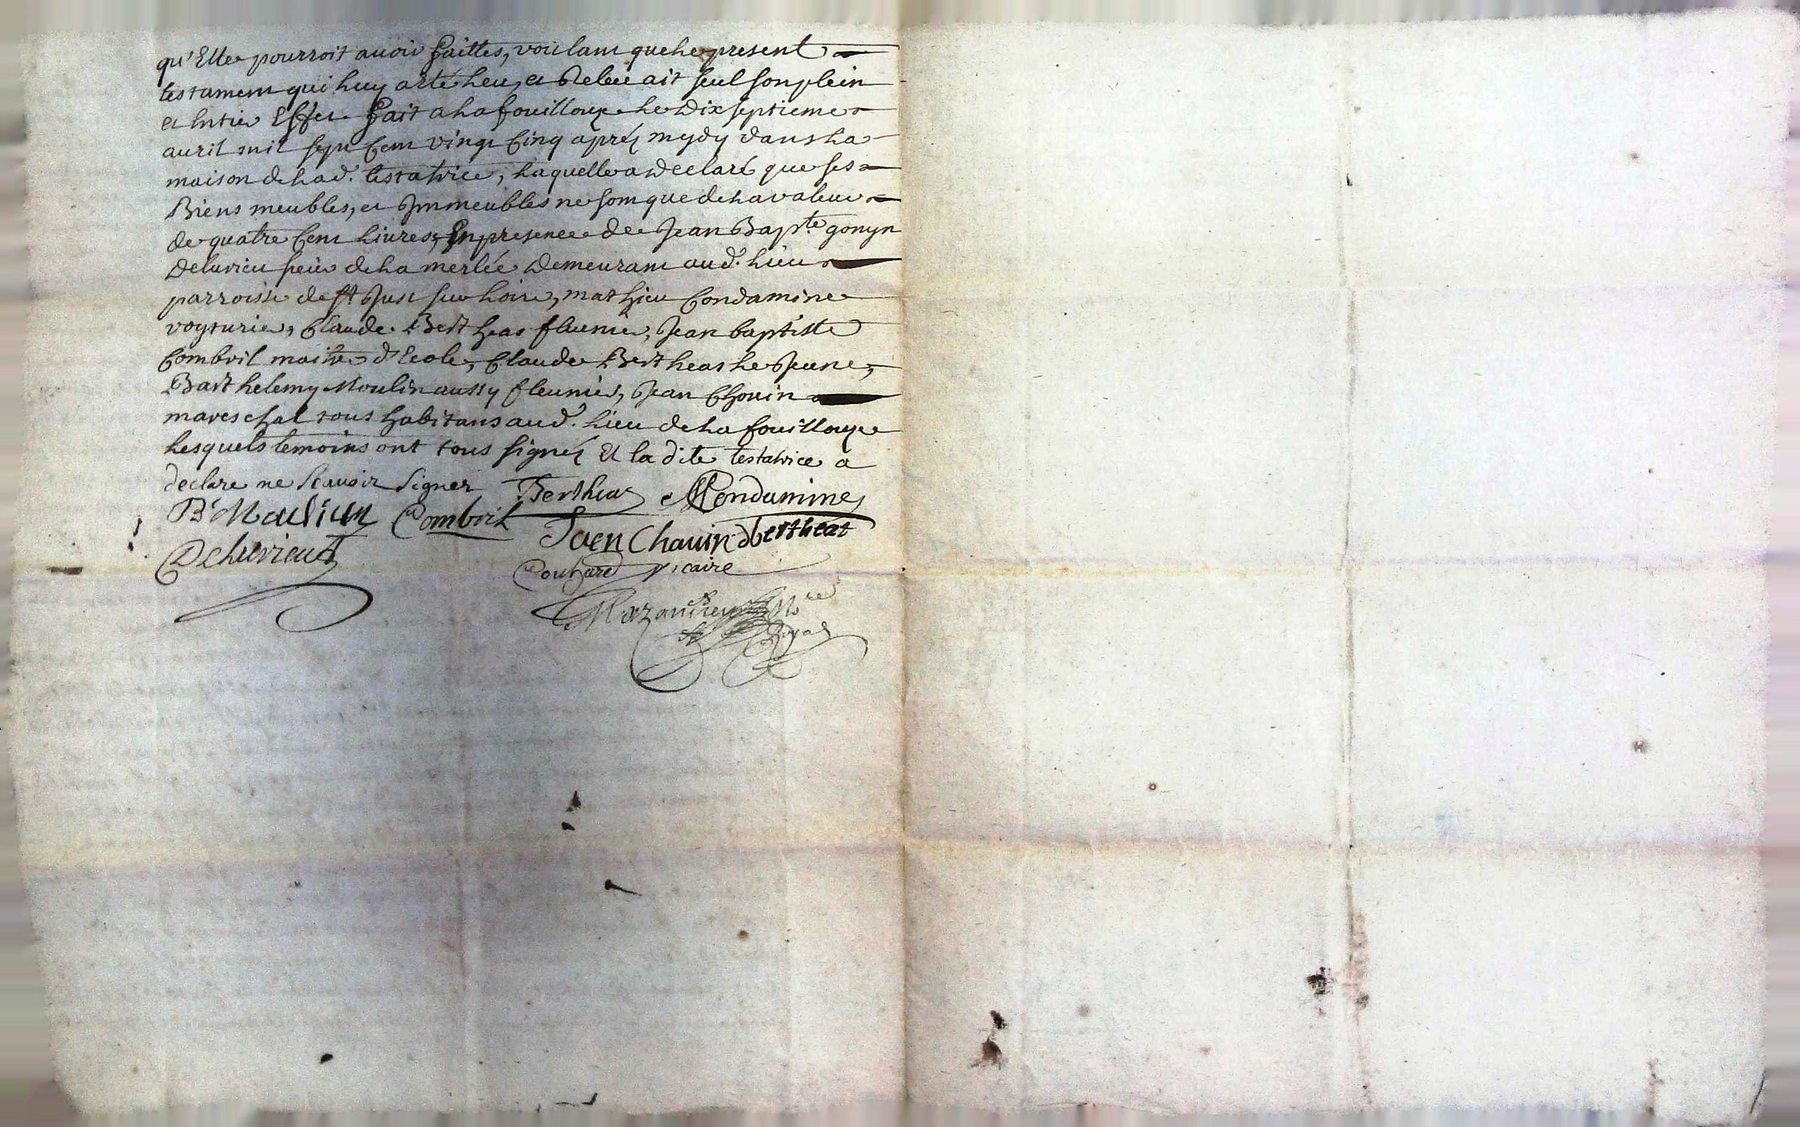 qu'Elle pourroit avoir faittes, voulant que le present
testament qui luy a été leu, et releu ait seul son plein
et Entier Effet. fait a la fouillouze le Dix septieme
avril mil sept Cent vingt Cinq après mydy dans la
maison de lad. testatrice, laquelle a Declaré que ses
Biens meubles, et Immeubles ne sont que de la valeur
de quatre Cent livres, En presence de Jean Bapte gonyn
Delurieu sieur de la merlée Demeurant aud. lieu
parroisse de St Just sur loire, mathieu Condamine
voyturier, Claude Bertheas fleunier, Jean baptiste
Combril maitre d'Ecole, Claude Bertheas le Jeune,
Barthelemy Moulin aussy fleunier, Jean Chovin
mareschal tous habitans aud. lieu de la fouillouze
lesquels temoins ont tous signés Et la dite testatrice a
declare ne scavoir signer Bertheas MCondamine
B Moulin Combril Jaen Chauin Bertheat
Delurieu
vicaire
Nre
Royal